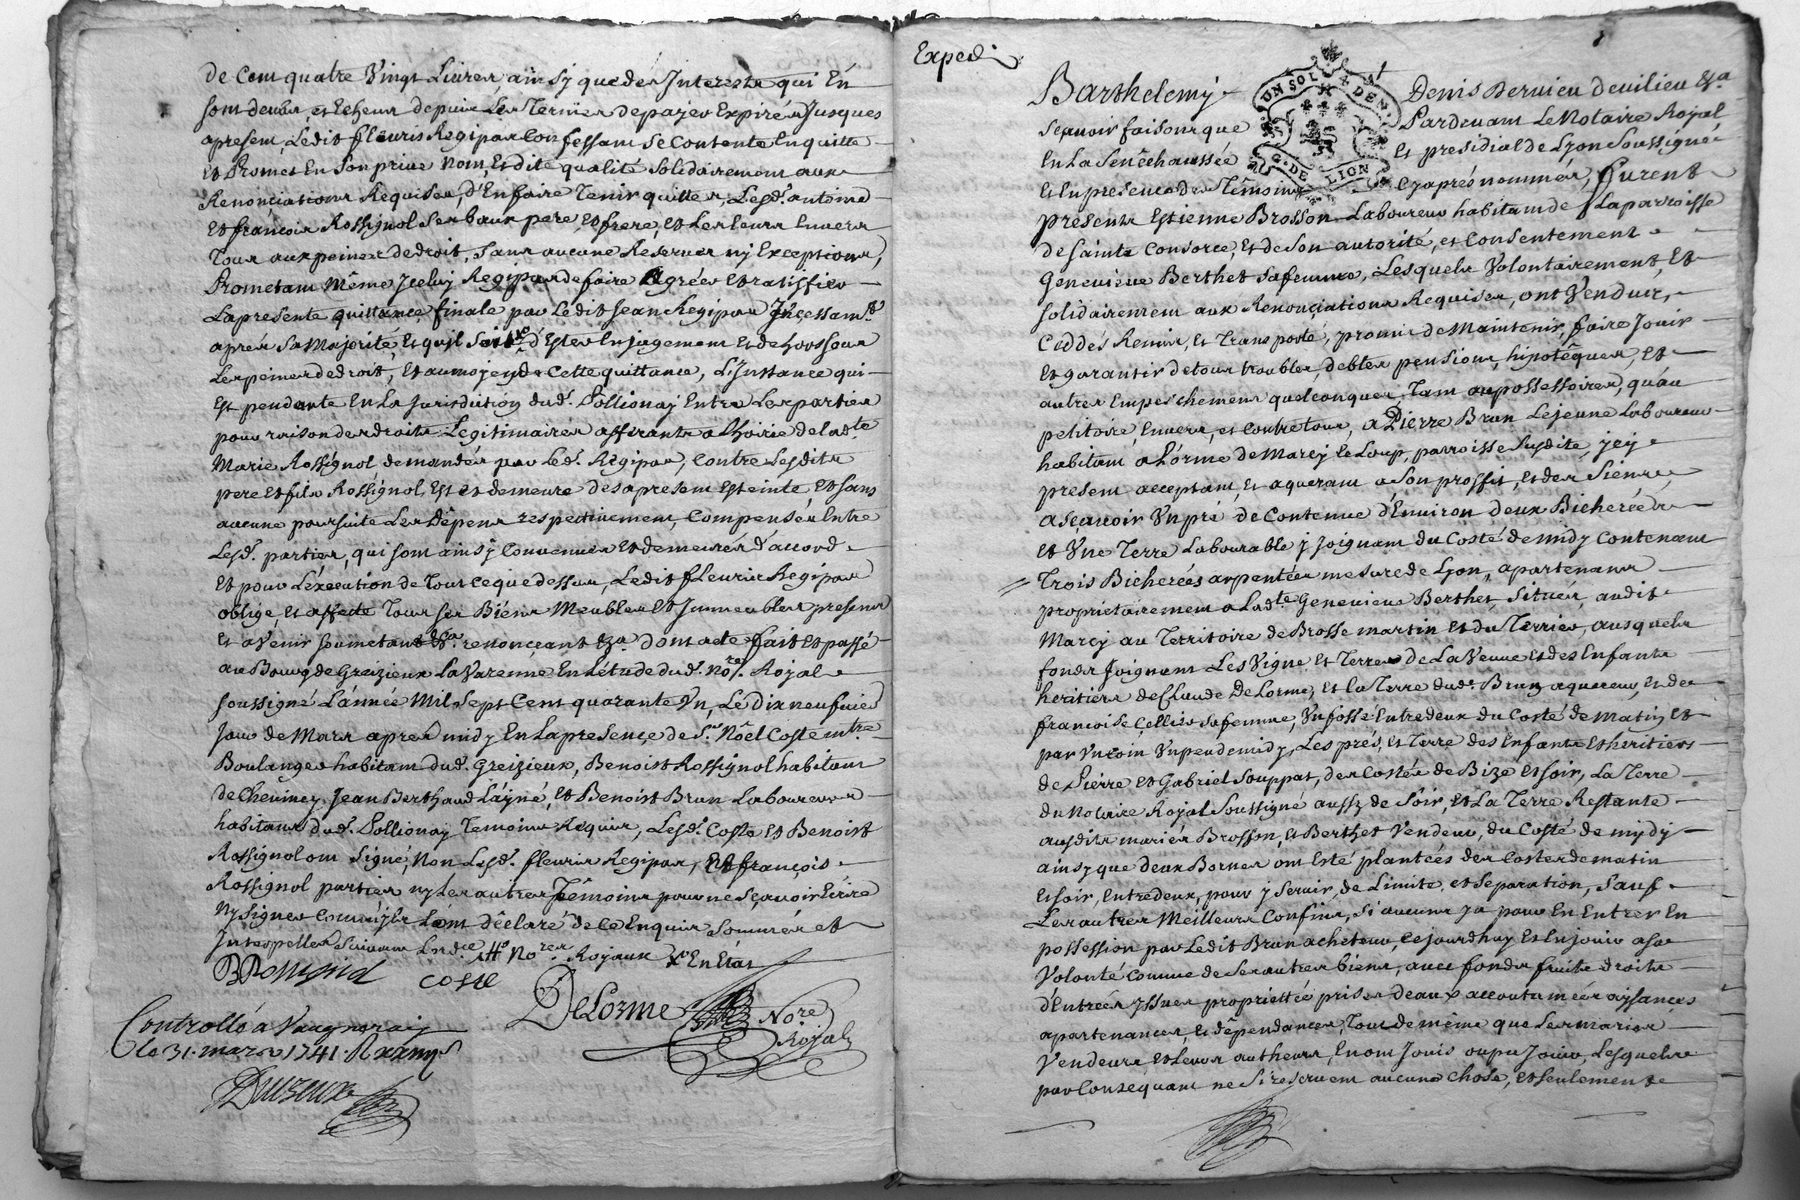 de Cent quatre Vingt Livres, ainsy que des Interests qui En
sont deubs, et Echeus depuis Les Termes de payer Expirés Jusques
apresent, Ledit fleuris Regipas Confessant Se Contente Enquitte
et Promet En Son privé Nom, Et dite qualité Solidairement aux
Renonciations Requises, d'En faire Tenir quittes, Lesd. antoine
et françois Rossignol Ses baux pere, et frere, et Les leurs Envers
Tous aux peines de droit, Sans aucune Reserves ny Exceptions,
Prometant Même Iceluy Regipas de faire Agréer et ratiffier
Lapresente quittance finale par Ledit Jean Regipas Inçessamt
apres Sa Majorité, Et quil Soit d'Ester En jugement et dehors Sous
Les peines de droit, Et au moyen de Cette quittance, L'Instance qui
Est pendante En La Jurisdiction dud. Pollionay Entre Les parties
pour raison des droits Legitimaires afferants a L'hoirie de lad.te
Marie Rossignol demandés par Led. Regipas, Contre Lesdits
pere et fils Rossignol, Est et demeure des apresent Esteinte, et Sans
aucune poursuite Les Dépens respectivement, Compensés Entre
Lesd. parties, qui Sont ainsy Convenues et demeurés d'accord
Et pour L'éxecution de Tout ce que dessus, Ledit fleuris Regipas
oblige, Et affecte Tous Ses Biens Meubles et Immeubles presens
Et avenir Soumetant &a renonçeant &a Dont acte fait et passé
au Bourg de Greizieux La Varenne En L'étude dud. No.re Royal
Soussigné L'année Mil Sept Cent quarante Un, Le Dix neufvieme
Jour de Mars apres midy En La presençe de S.r Noël Coste m.tre
Boulanger habitant dud. Greizieux, Benoist Rossignol habitant
de Cheviney, Jean Berthaud L'ayné, et Benoist Brun Laboureurs
habitans dud. Pollionay Temoins Requis, Lesd. Coste et Benoist
Rossignol ont Signé, Non Lesd. fleuris Regipas, Et françois
Rossignol parties ny Les autres Témoins pour ne Sçavoir Ecrire
Ny Signer Comme ils L'ont Déclaré de Ce Enquis Sommés et
Interpellés Suivant L'ord.ce No.res Royaux En Etat
BRossignol coste DeLorme Nore Royal
Controllé a Vaugneray
le 31. mars 1741.
Expedi
Barthelemy Denis Dervieu de vilieu &a
Sçavoir faisons que Pardevant Le Notaire Royal
En La Sénéchaussée Et presidial de Lyon Soussigné
Et En presence des Témoins Cy aprés nommés, furent
UN SOL 4 DEN
G. DE LION
Presents Estienne Brosson Laboureur habitant de La parroisse
de Sainte Consorce, Et de Son autorité, et Consentement
Genevieve Berthet Sa femme, Lesquels Volontairement, Et
Solidairement aux Renonçiations Requises, ont Vendus,
Ceddés Remis, Et Transporté, promis de Maintenir, faire Jouir
Et garantir de tous troubles, debtes pensions, hipotêques, Et
autres Empeschemens quelconques, Tant au possessoires, qu'au
petitoire, Envers, et Contre tous, a Pierre Brun Lejeune Laboureur
habitant a L'orme de Marcy le Loup, parroisse Susdite, jcy
present acceptant, Et aquerant a Son proffit, Et des Siens,
a Sçavoir Un pre de Contenue d'Environ deux Bicherées
Et Une Terre Labourable y Joignant du Costé de midy Contenant
Trois Bicherées arpentées mesure de Lyon, apartenans
proprietairement a Lad.te Genevieve Berthet, Situés, audit
Marcy au Territoire de Brosse martin et du Terrier, ausquels
fonds Joignent Les Vigne et Terres de La Veuve et des Enfants
heritiers de Claude DeLorme, Et la Terre dud. Brun aquereur, et de
françoise Cellier Sa femme, Un fossé Entredeux du Costé de Matin, et
par Un coin Un peu de midy, Les prés, et Terre des Enfants et heritiers
de Pierre et Gabriel Souppat, des Costés de Bize et Soir, La Terre
du Notaire Royal Soussigné aussy de Soir, Et La Terre Restante
ausdits mariés Brosson, Et Berthet Vendeurs, du Costé de mydy
ainsy que deux Bornes ont Esté plantées des Costés de matin
Et Soir, Entredeux, pour y Servir, de Limite, et Separation, Sauf
Les autres Meilleurs Confins, Si aucuns y a pour En Entrer En
possession par Ledit Brun acheteur, Ce jourdhuy Et En jouir a Sa
Volonté Comme de Ses autres biens, avec fonds fruits droits
d'Entrées Issues proprietées prises d'eaux accoutumées aysances
apartenances, Et dépendances, Tout de même que Les mariés
Vendeurs, Et leurs autheurs, En ont Jouis ou pu Jouir, Lesquels
par Consequant ne Si reservent aucune Chose, Et Seulement